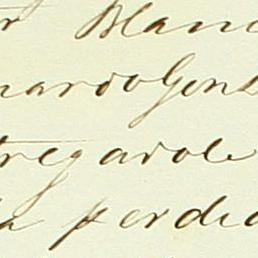 r Blanc
nardo Gonz
tregarole
la perdid